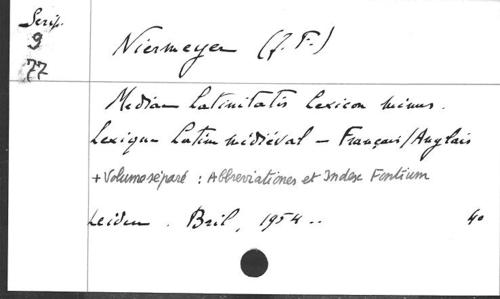 Scrip.
9
77
Niermeyer (J. F.)
Mediae Latinitatis Lexicon minus.
Lexique Latin médiéval - Français/Anglais
+ Volume séparé : Abbreviationes et Index Fontium
Leiden. Bril, 1954..
4o